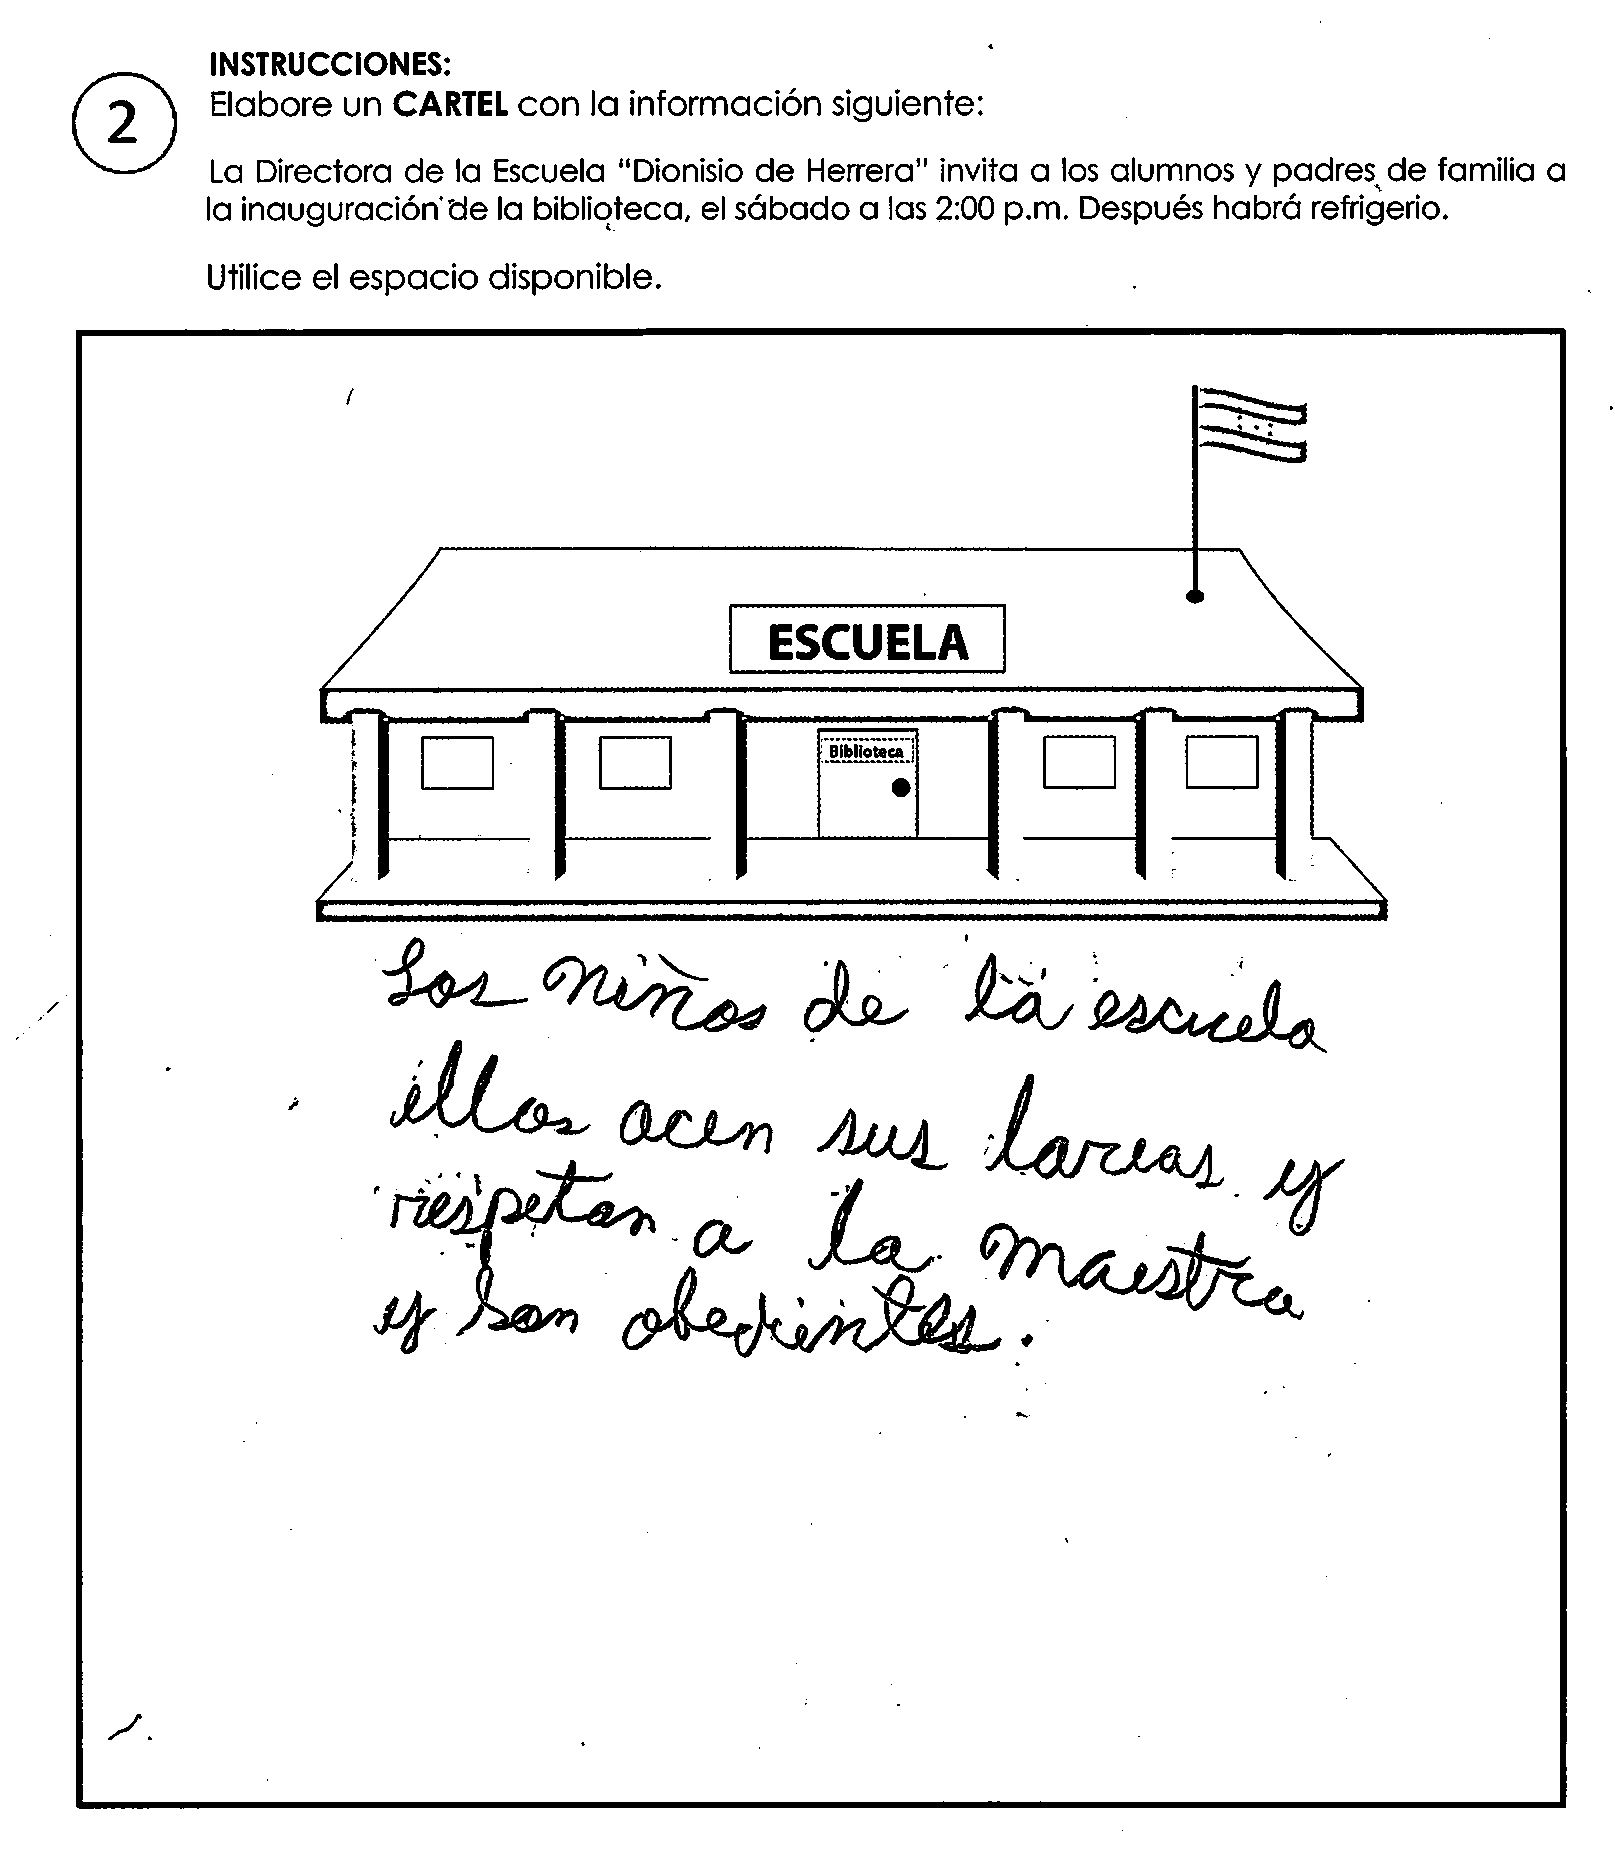 INSTRUCCIONES:
2
Elabore un CARTEL con la información siguiente:
La Directora de la Escuela "Dionisio de Herrera" invita a los alumnos y padres de familia a
la inauguración de la biblioteca, el sábado a las 2:00 p.m. Después habrá refrigerio.
Utilice el espacio disponible.
ESCUELA
Biblioteca
Los niños de la escuela
ellos acen sus tareas y
respetan a la maestra
y son obedientes.